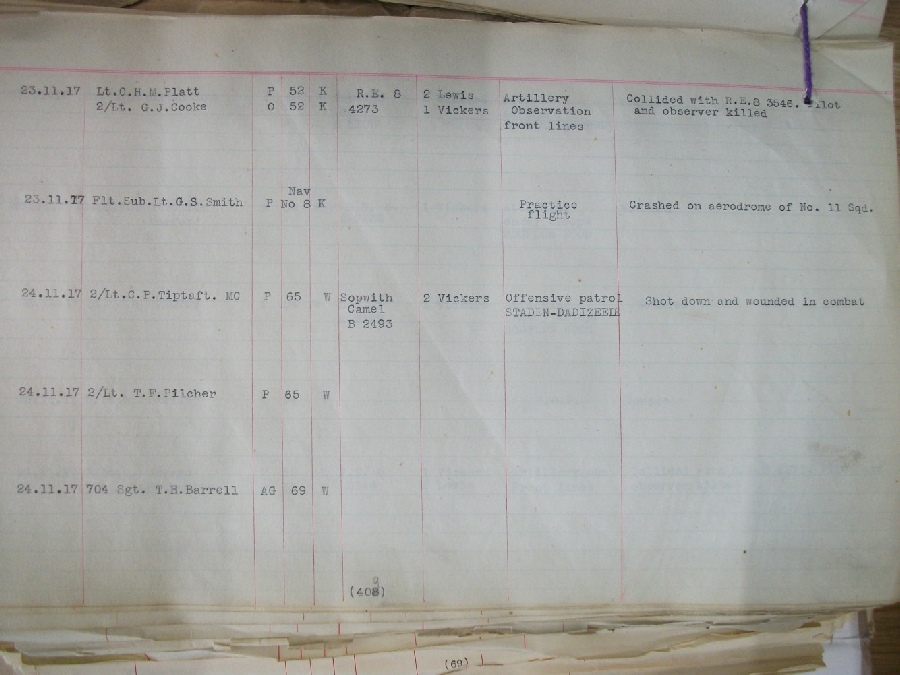 23.11.17 Lt.C.H.M.Platt P 52 K R.E. 8 2 Lewis Artillery Collided with R.E.8 3546. Pilot
2/Lt. G.J.Cooke O 52 K 4273 1 Vickers Observation and observer killed
front lines
Nav
23.11.17 Flt.Sub.Lt.G.S.Smith P No 8 K Practice Crashed on aerodrome of No. 11 Sqd.
flight
24.11.17 2/Lt.C.P.Tiptaft. MC P 65 W Sopwith 2 Vickers Offensive patrol Shot down and wounded in combat
Camel STADEN-DADIZEELE
B 2493
24.11.17 2/Lt. T.F.Pilcher P 65 W
24.11.17 704 Sgt. T.H.Barrell AG 69 W
(408)
(69)